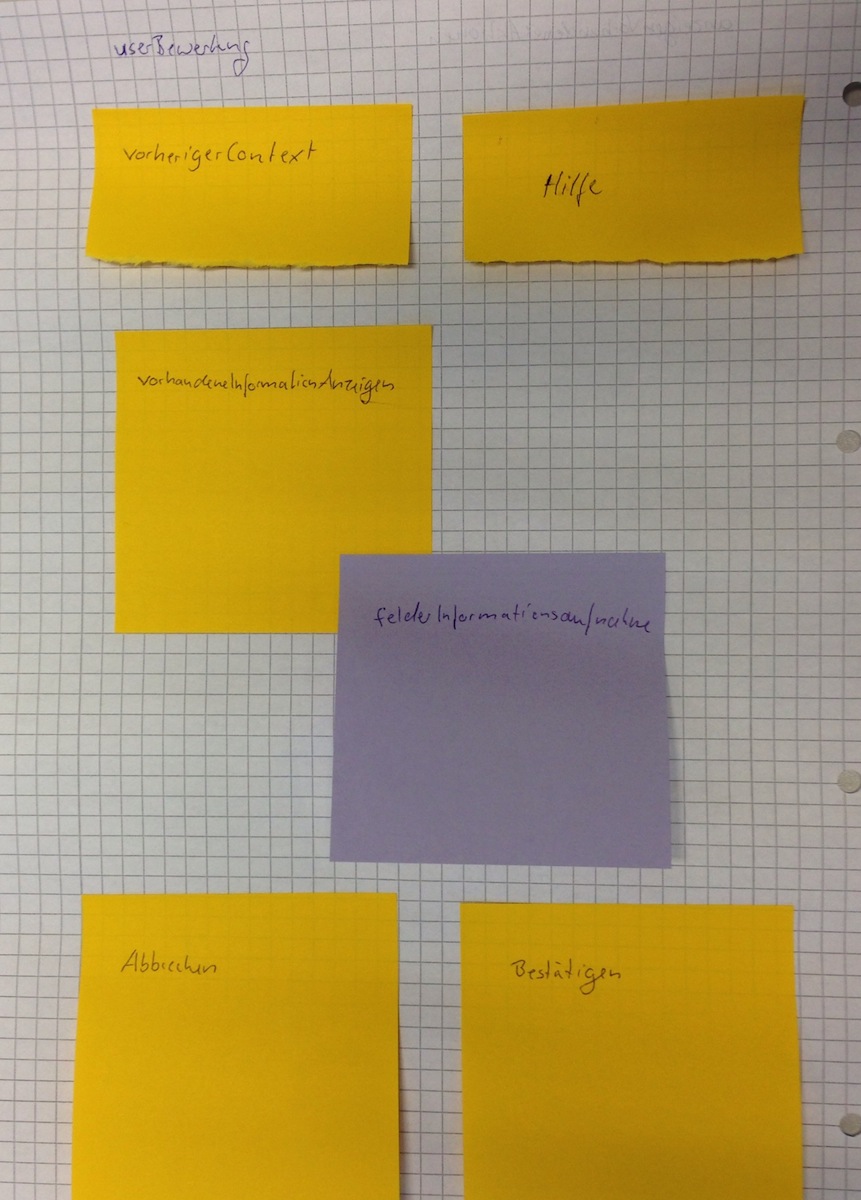 userBewertung
vorherigerContext
Hilfe
vorhandeneInformationAnzeigen
felderInformationsaufnahme
Abbrechen
Bestätigen